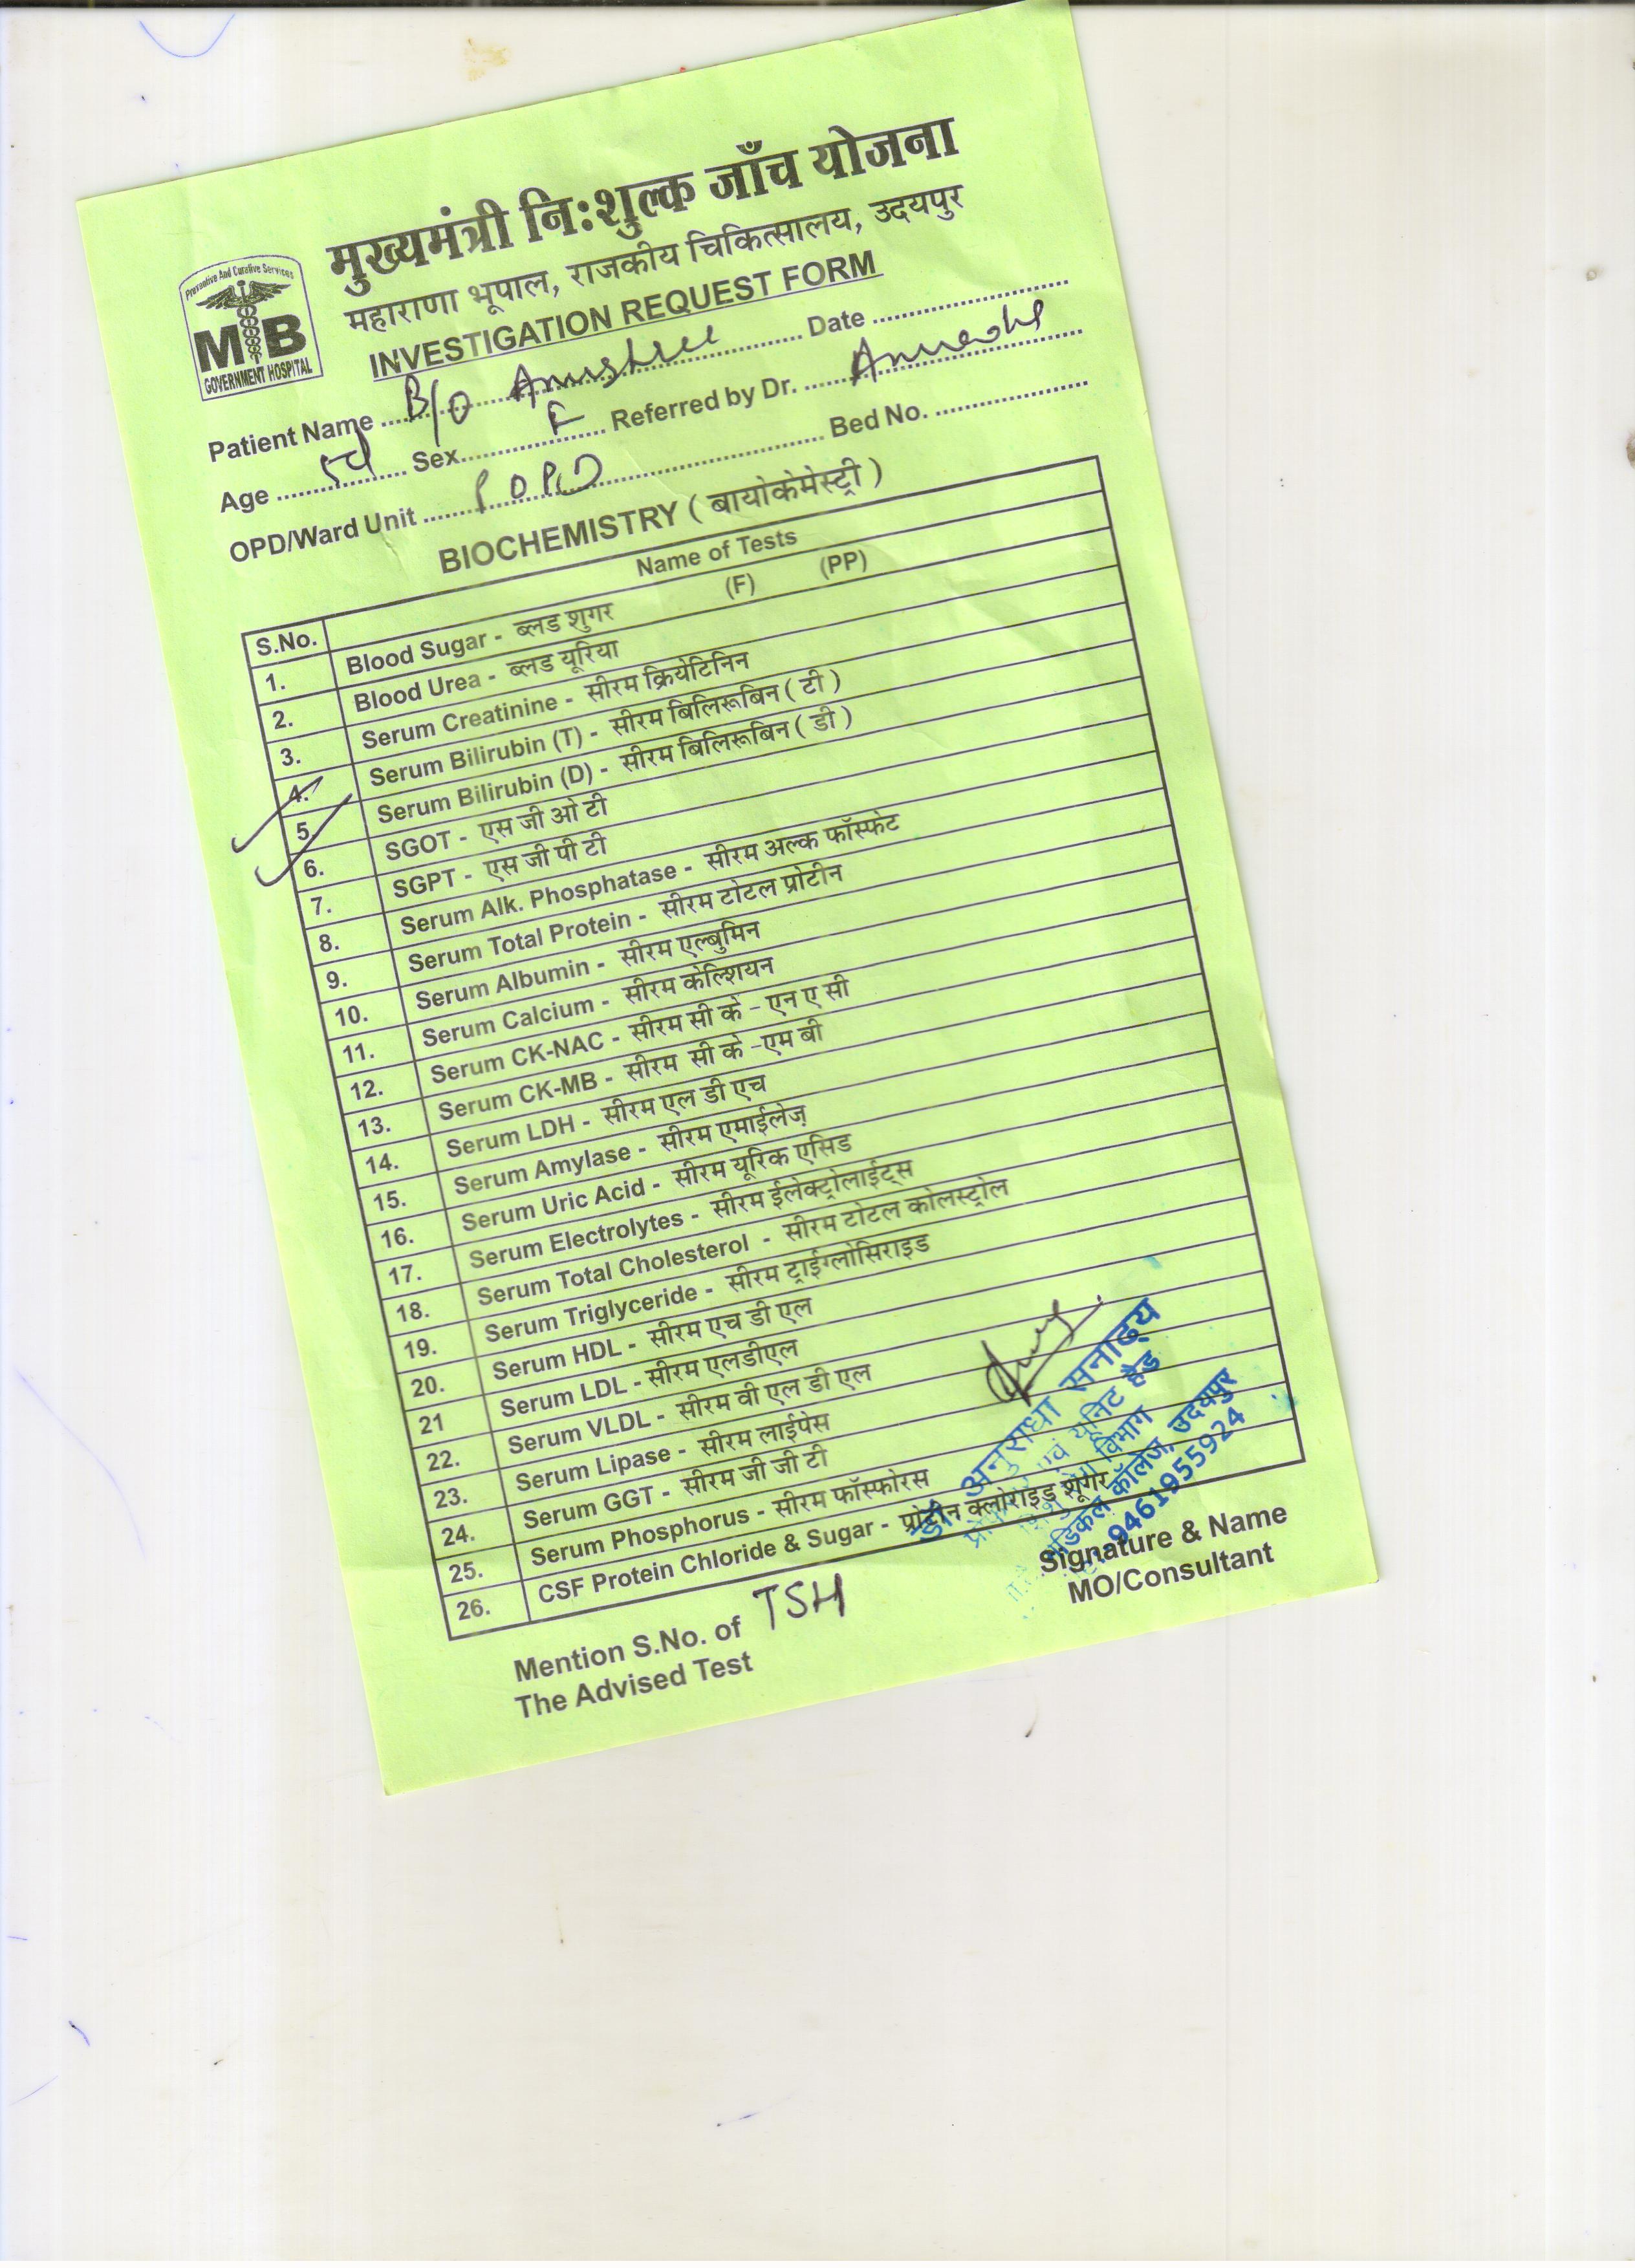 मुख्यमंत्री निःशुल्क जाँच योजना
महाराणा भूपाल, राजकीय चिकित्सालय, उदयपुर
Preventive And Curative Services
MB
GOVERNMENT HOSPITAL
INVESTIGATION REQUEST FORM
Patient Name B/O Anushree Date
Age 5d Sex F Referred by Dr.
OPD/Ward Unit POPD Bed No.
BIOCHEMISTRY ( बायोकेमेस्ट्री )
S.No. Name of Tests
1. Blood Sugar - ब्लड शुगर (F) (PP)
2. Blood Urea - ब्लड यूरिया
3. Serum Creatinine - सीरम क्रियेटिनिन
4. Serum Bilirubin (T) - सीरम बिलिरूबिन ( टी )
5. Serum Bilirubin (D) - सीरम बिलिरूबिन ( डी )
6. SGOT - एस जी ओ टी
7. SGPT - एस जी पी टी
8. Serum Alk. Phosphatase - सीरम अल्क फॉस्फेट
9. Serum Total Protein - सीरम टोटल प्रोटीन
10. Serum Albumin - सीरम एल्बुमिन
11. Serum Calcium - सीरम केल्शियन
12. Serum CK-NAC - सीरम सी के - एन ए सी
13. Serum CK-MB - सीरम सी के -एम बी
14. Serum LDH - सीरम एल डी एच
15. Serum Amylase - सीरम एमाईलेज़
16. Serum Uric Acid - सीरम यूरिक एसिड
17. Serum Electrolytes - सीरम ईलेक्ट्रोलाईट्स
18. Serum Total Cholesterol - सीरम टोटल कोलस्ट्रोल
19. Serum Triglyceride - सीरम ट्राईग्लोसिराइड
20. Serum HDL - सीरम एच डी एल
21 Serum LDL - सीरम एलडीएल
22. Serum VLDL - सीरम वी एल डी एल
23. Serum Lipase - सीरम लाईपेस
24. Serum GGT - सीरम जी जी टी
25. Serum Phosphorus - सीरम फॉस्फोरस
26. CSF Protein Chloride & Sugar - प्रोटीन क्लोराइड शूगर
डॉ. अनुराधा सनाढ्य
एवं यूनिट हैड
विभाग
मेडिकल कॉलेज, उदयपुर
9461955924
Mention S.No. of TSH
The Advised Test
Signature & Name
MO/Consultant